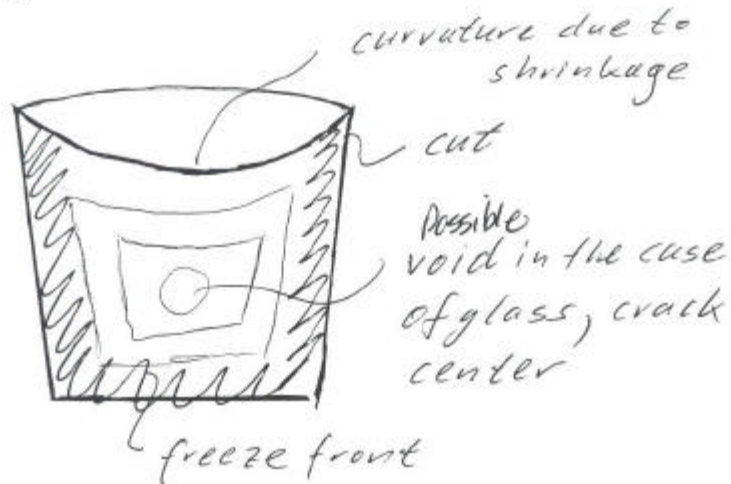 curvature due to
shrinkage
cut
Possible
void in the case
of glass, crack
center
freeze front